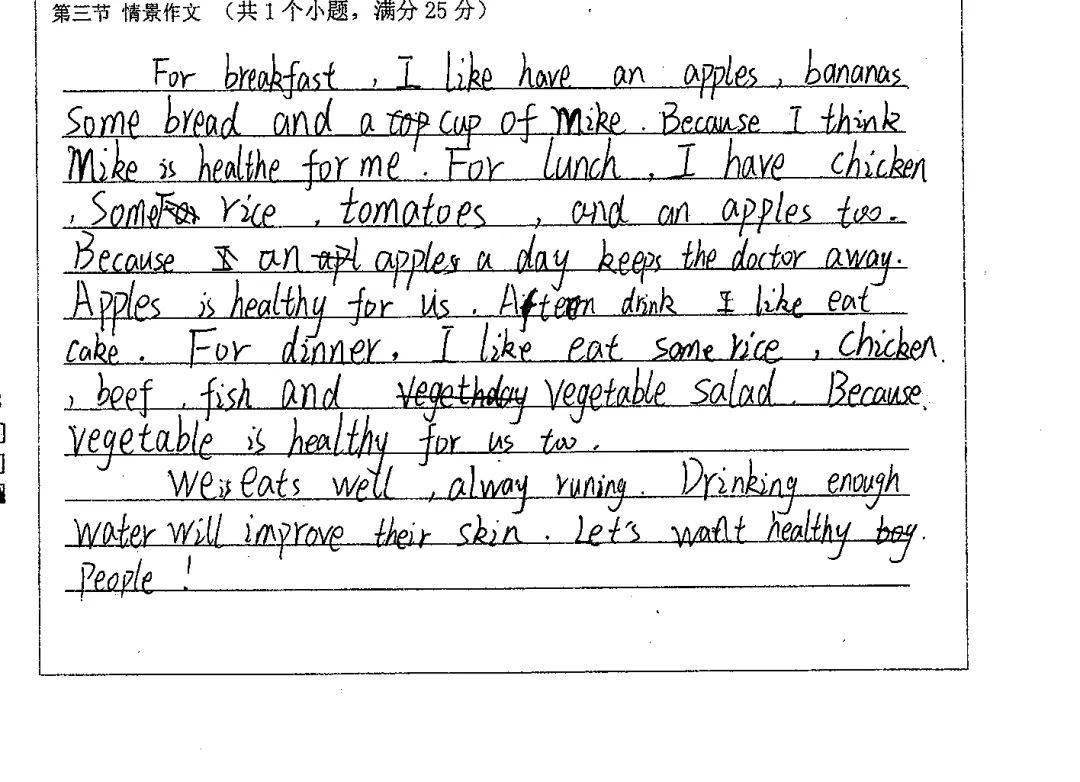 第三节 情景作文 (共1个小题,满分25分)
For breakfast , I like have an apples , bananas
Some bread and a cup of Mike . Because I think
Mike is healthe for me . For lunch , I have chicken
, Some rice , tomatoes , and an apples too.
Because an apples a day keeps the doctor away.
Apples is healthy for us . Afteen drink I like eat
cake . For dinner , I like eat some rice , chicken
, beef , fish and vegetable salad . Because
vegetable is healthy for us too .
We is eats well , alway runing . Drinking enough
water will improve their skin . Let's want healthy
People !